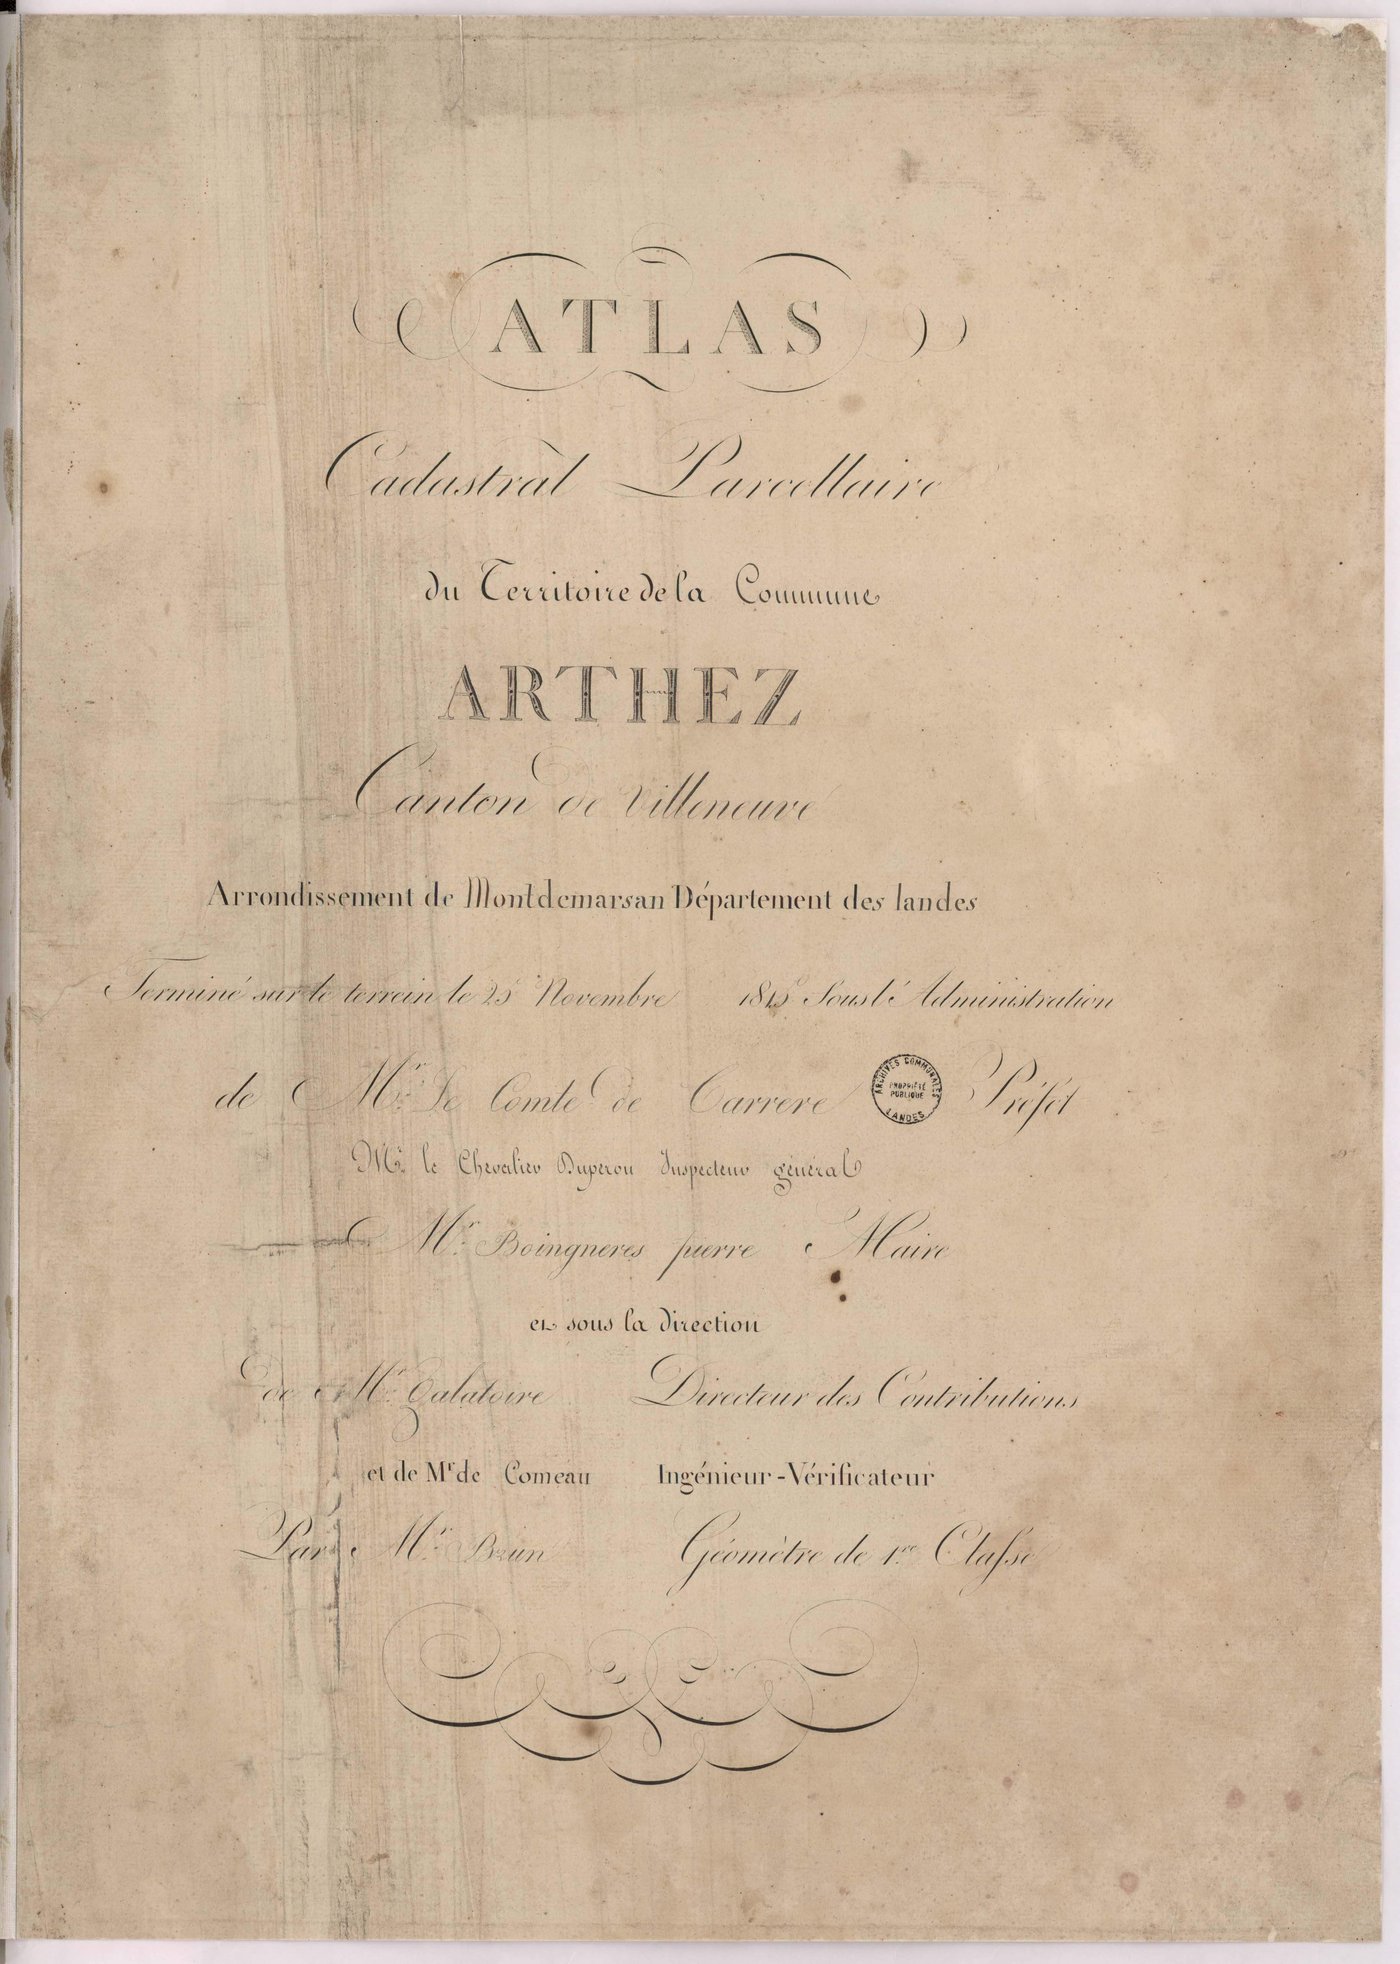 ATLAS
Cadastral Parcellaire
du Territoire de la Commune
ARTHEZ
Canton de Villeneuve
Arrondissement de Montdemarsan Département des landes
Terminé sur le terrein le 25 Novembre 1815 Sous l'Administration
de Mr. Le Comte de Carrere Préfet
ARCHIVES COMMUNALES
PROPRIÉTÉ
PUBLIQUE
LANDES
Mr. le Chevalier Duperou Inspecteur général
Mr. Boingneres pierre Maire
et sous la direction
de Mr. Galatoire Directeur des Contributions
et de Mr de Comeau Ingénieur-Vérificateur
Par Mr. Brun Géomètre de 1re. Classe